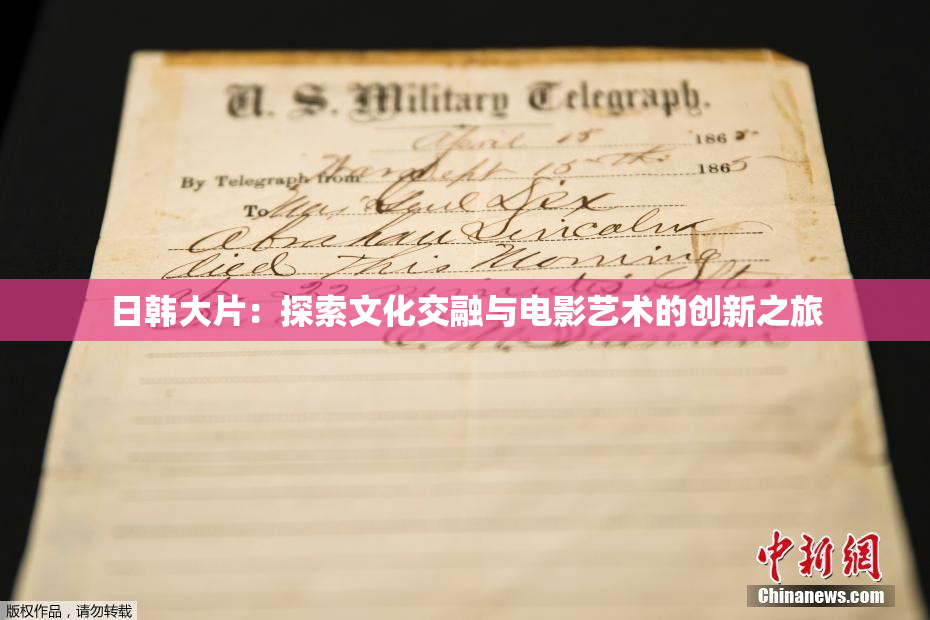 U. S. Military Telegraph.
April 15 1865
By Telegraph from War Dept 15th 1865
To Maj Genl Dix
Abraham Lincoln
died This Morning
22 minutes after
日韩大片：探索文化交融与电影艺术的创新之旅
E. M. Stanton
中新网
Chinanews.com
版权作品，请勿转载